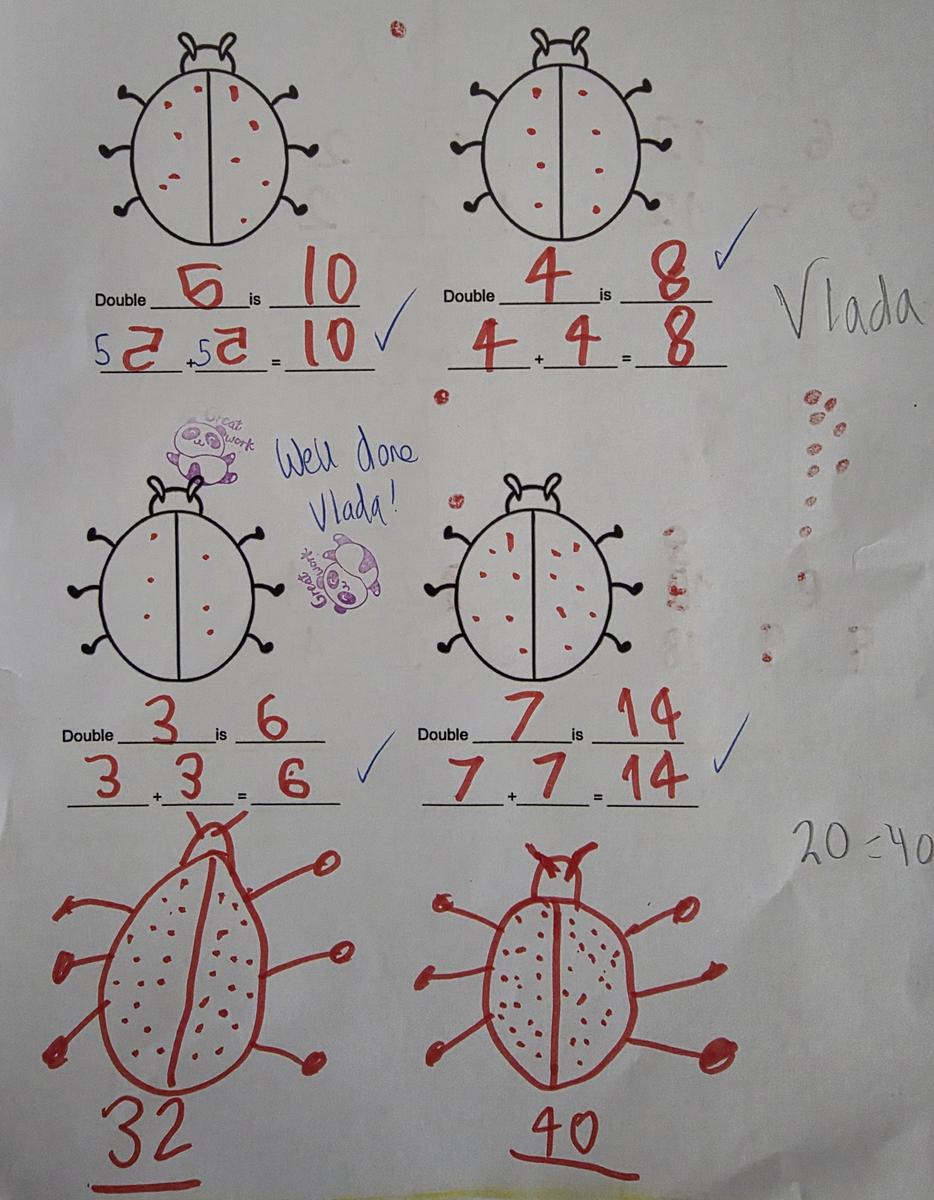 Double 5 is 10
5 5 + 5 5 = 10
Double 4 is 8
4 + 4 = 8
Vlada
Great work
Well done
Vlada!
Great work
Double 3 is 6
3 + 3 = 6
Double 7 is 14
7 + 7 = 14
20 = 40
32
40